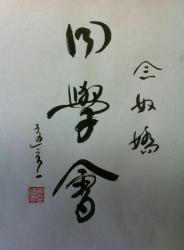 念奴嬌
同學會